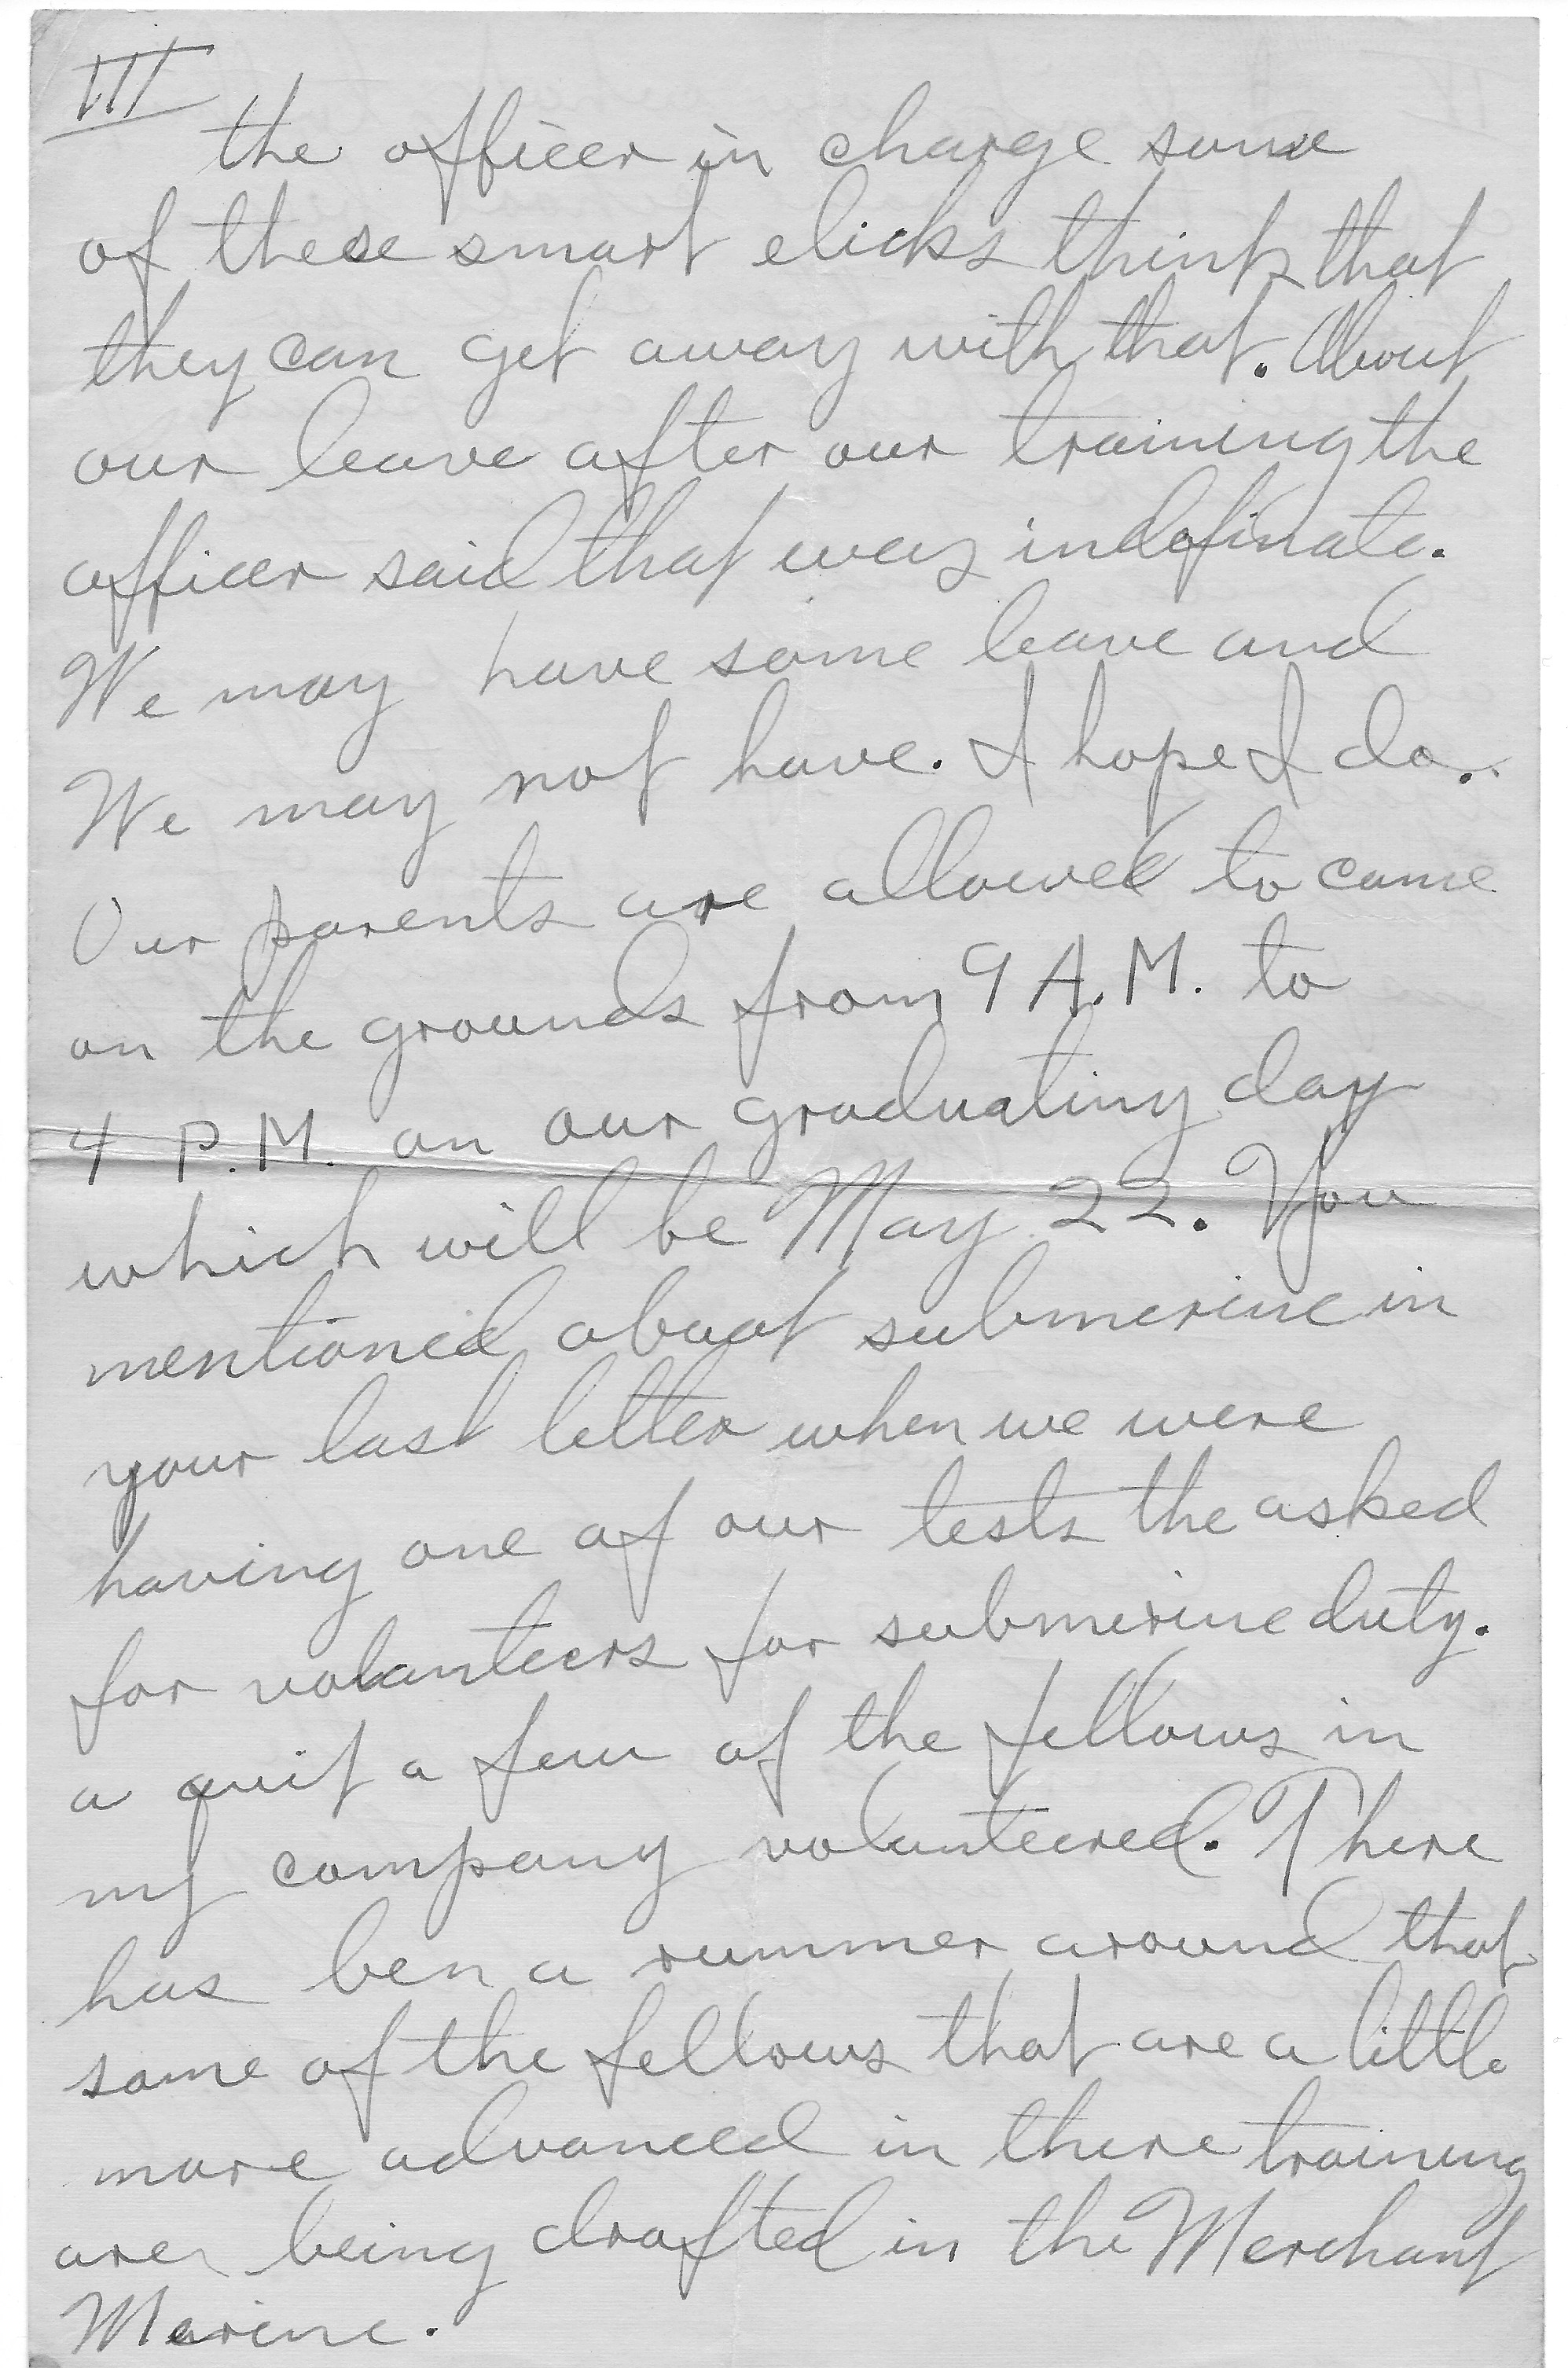 III
the officer in charge some
of these smart elicks think that
they can get away with that. About
our leave after our training the
officer said that was indefinate.
We may have some leave and
We may not have. I hope I do.
Our parents are allowed to come
on the grounds from 9 A.M. to
4 P.M. on our graduating day
which will be May 22. You
mentioned about submerine in
your last letter when we were
having one of our tests the asked
for volanteers for submerine duty.
a quit a few of the fellows in
my company volunteered. There
has ben a rummer around that
some of the fellows that are a little
more advanced in there training
are being drafted in the Merchant
Marine.